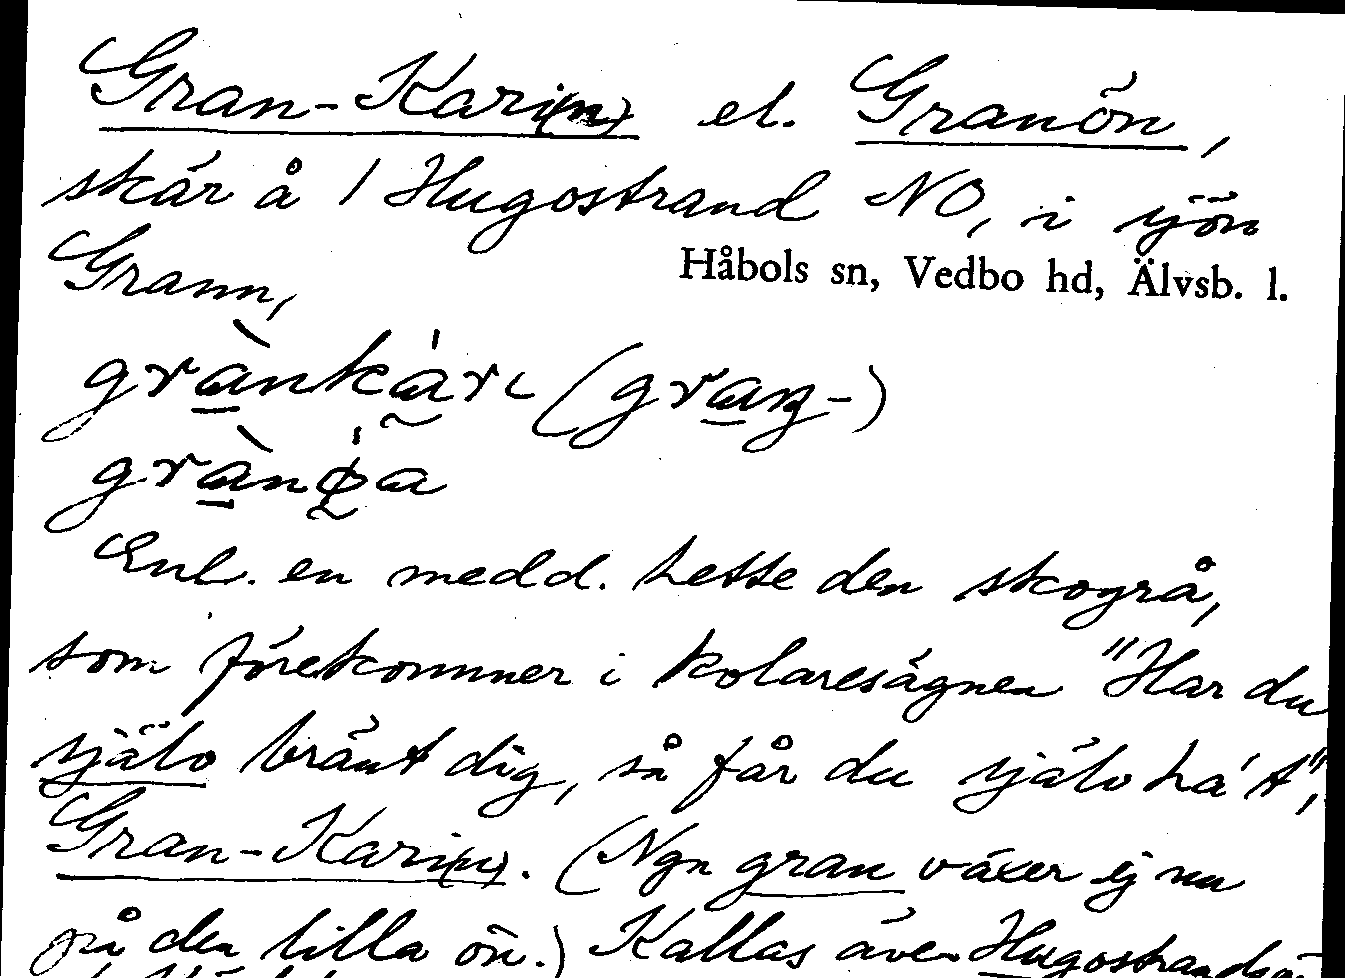 Gran-Kari(n) el. Granön,
skär å 1 Hugostrand NO, i sjön
Grann,
Håbols sn, Vedbo hd, Älvsb. l.
grànkárɩ (graŋ-)
grànø̀a
Enl. en medd. hette den skogrå,
som förekommer i kolaresägnen "Har du
själv bränt dig, så får du själv ha't",
Gran-Kari(n). (Ngn gran växer ej nu
på den lilla ön.) Kallas även